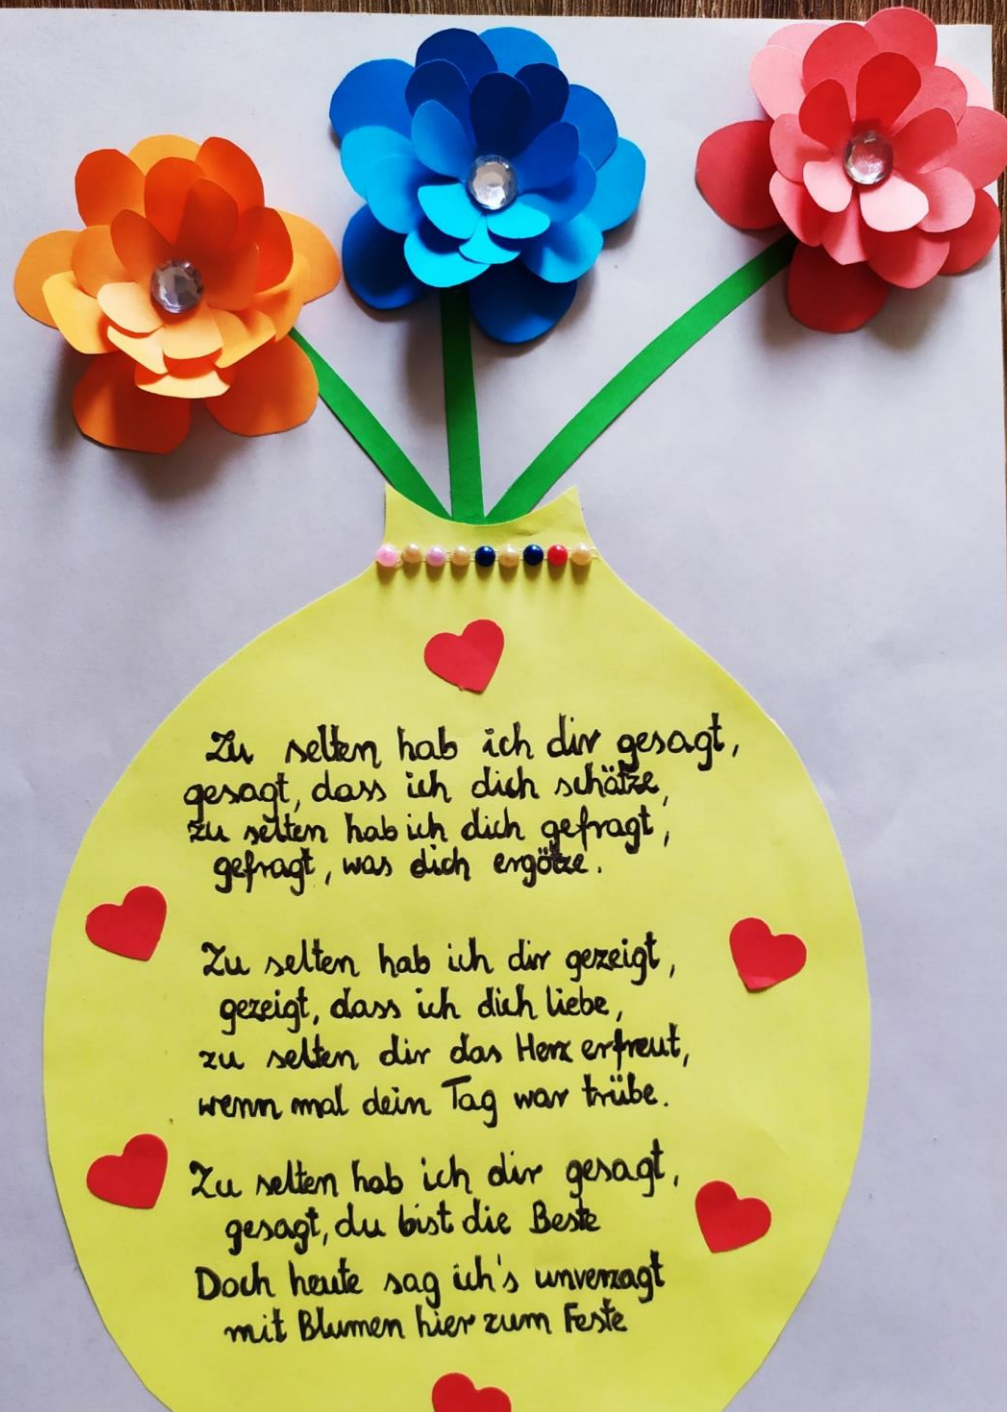 Zu selten hab ich dir gesagt,
gesagt, dass ich dich schätze,
zu selten hab ich dich gefragt,
gefragt, was dich ergötze.
Zu selten hab ich dir gezeigt,
gezeigt, dass ich dich liebe,
zu selten dir das Herz erfreut,
wenn mal dein Tag war trübe.
Zu selten hab ich dir gesagt,
gesagt, du bist die Beste
Doch heute sag ich's unverzagt
mit Blumen hier zum Feste